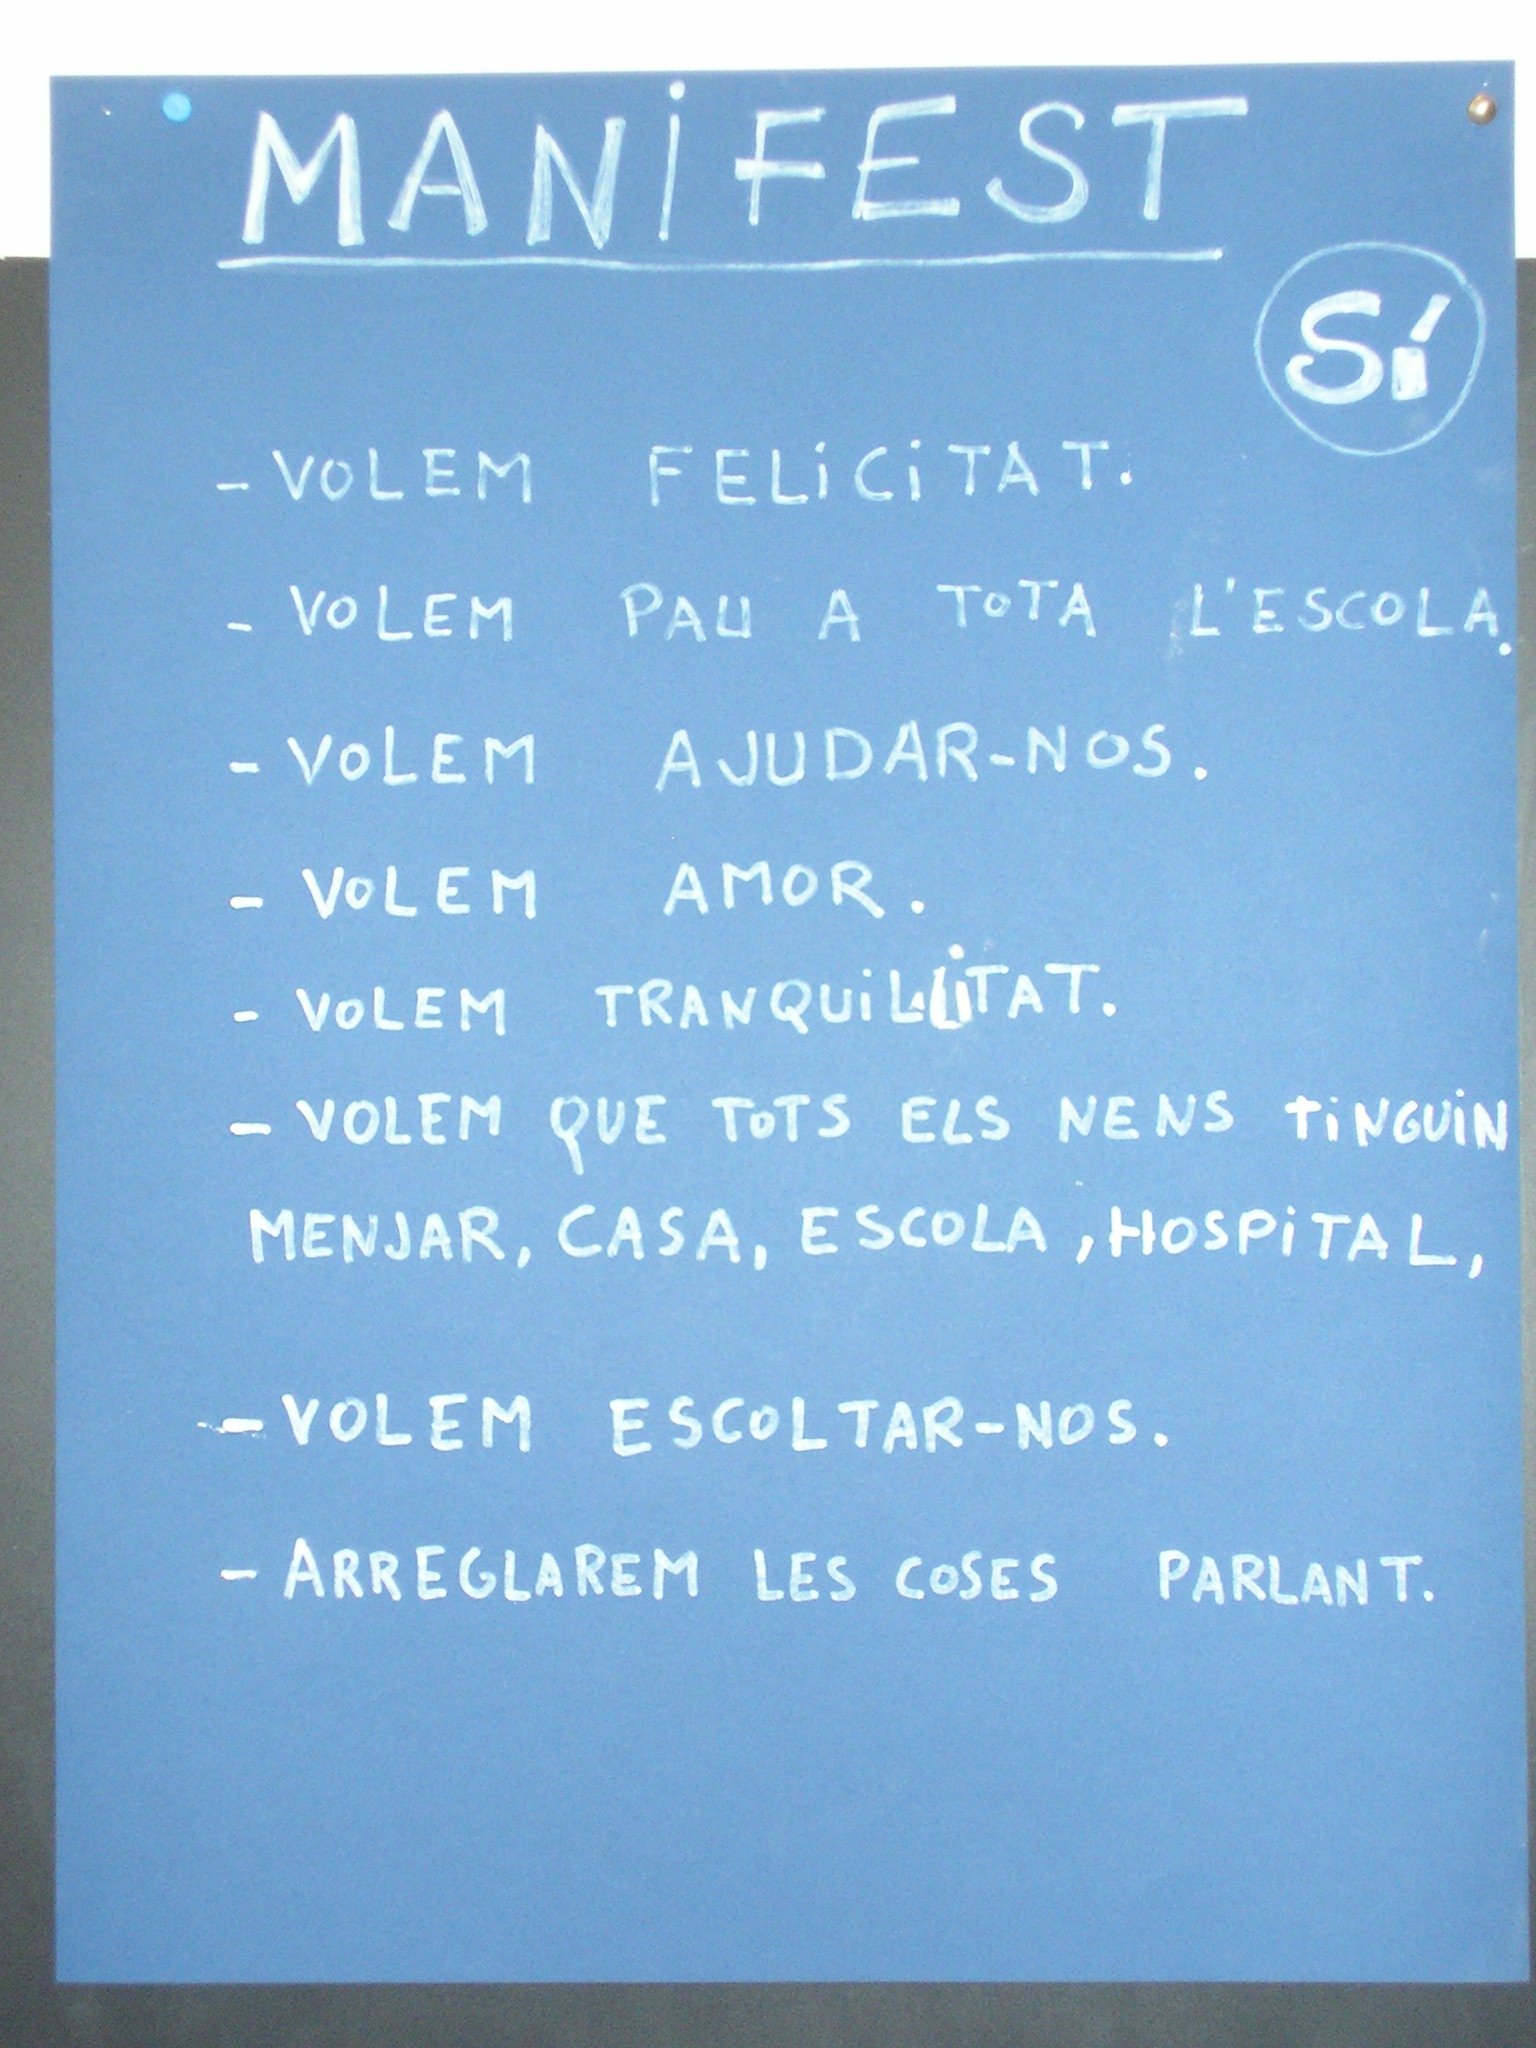 MANiFEST
Sí
- VOLEM FELiCiTAT.
- VOLEM PAU A TOTA L'ESCOLA.
- VOLEM AJUDAR-NOS.
- VOLEM AMOR.
- VOLEM TRANQUiL·LiTAT.
- VOLEM QUE TOTS ELS NENS TiNGUiN
MENJAR, CASA, ESCOLA, HOSPiTAL,
- VOLEM ESCOLTAR-NOS.
- ARREGLAREM LES COSES PARLANT.